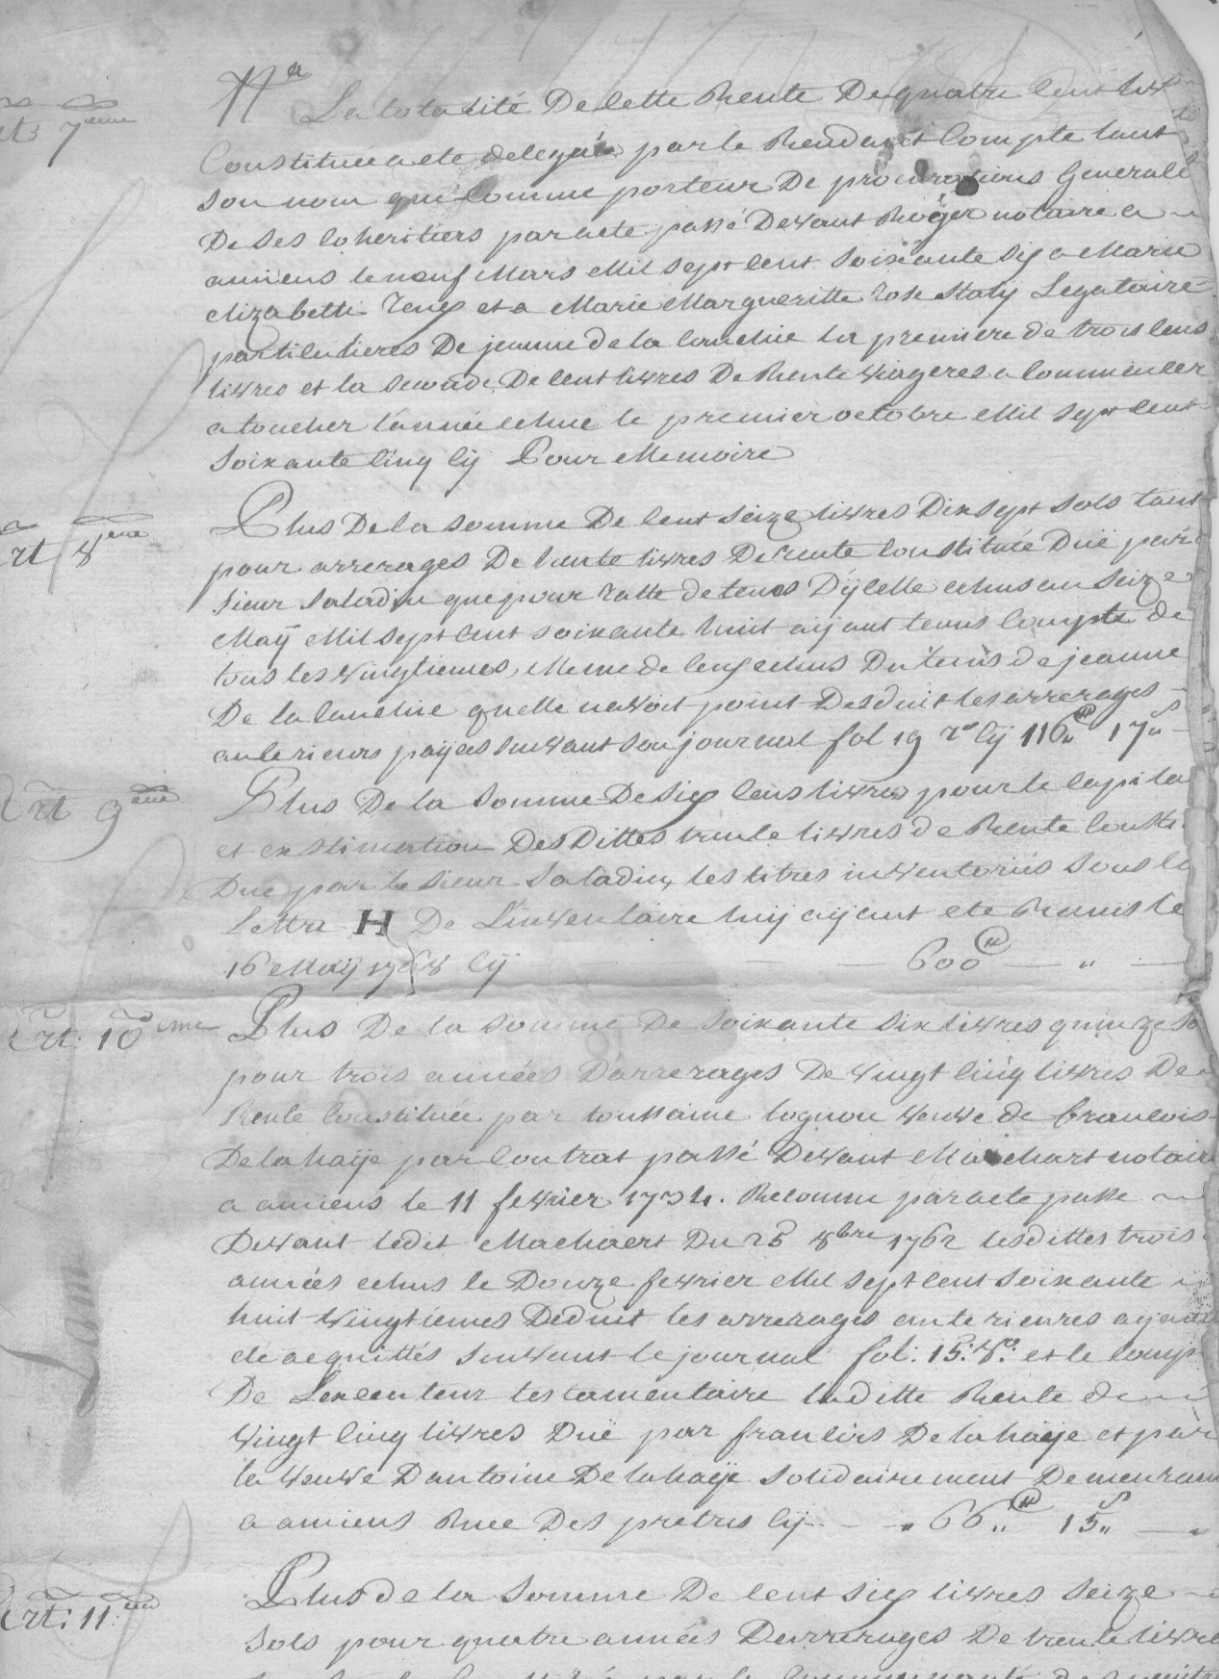 Art: 7eme
Na La totalité De Cette Rente De quatre Cent
Constituée a ete deleguée par le Rendant Compte tant
son nom que Comme porteur De procurations Generalle
De Ses Coheritiers par acte passé Devant Roger notaire a
amiens le neuf Mars Mil Sept Cent Soixante Six a Marie
Elizabette et a Marie Margueritte Rose Legataire
particulieres De jeanne de la la premiere de trois Cens
livres et la Seconde De Cent livres De Rente viageres a Commencer
a toucher l'année echue le premier octobre Mil Sept Cent
Soixante Cinq Cy Pour Memoire
Art 8eme
Plus De la Somme De Cent Seize livres Dix Sept Sols tant
pour arrerages De trente livres De rente Constituée Duë par
Sieur Saladin que pour ratte de tems D'ycelle echus au Seize
Maÿ Mil Sept Cent Soixante huit aÿant tenus Compte de
tous les vingtiemes, Meme de Ceux echus Du tems de jeanne
De la quelle navoit point Desduit les arrerages
anterieurs paÿées Suivant Son journal fol 19 ro Cÿ 116lt 17s
Art 9eme
Plus De la Somme De Six Cens livres pour le Capital
et exstimation Des Dittes trente livres de Rente Consti.
Duë par le Sieur Saladin, les titres inventoriés Sous la
Lettre H De L'inventaire luy aÿant ete Remis le
16 Maÿ 1768 Cÿ 600lt — " —
Art: 10eme
Plus De la Somme De Soixante Six livres quinze So
pour trois années D'arrerages De vingt Cinq livres De
Rente Constituée par toussaine veuve de francois
Delahaÿe par Contrat passé Devant notaire
a amiens le 11 fevrier Reconnu par acte passé
Devant ledit Du 25 8bre 1762 lesdittes trois
années echus le Douze fevrier Mil Sept Cent Soixante
huit vingtiemes Deduit les arrerages anterieures aÿant
eté acquittés Suivant le journal fol: 15: vo. et le Comp
De L'executeur testamentaire laditte Rente de
vingt Cinq livres Duë par francois Delahaÿe et par
la veuve D'antoine Delahaÿe Solidairement Demeurant
a amiens Rue Des pretres Cÿ — " 66lt 15s —
Art: 11eme
Plus de la Somme De Cent Six livres Seize
Sols pour quatre années Darrerages De trente livre